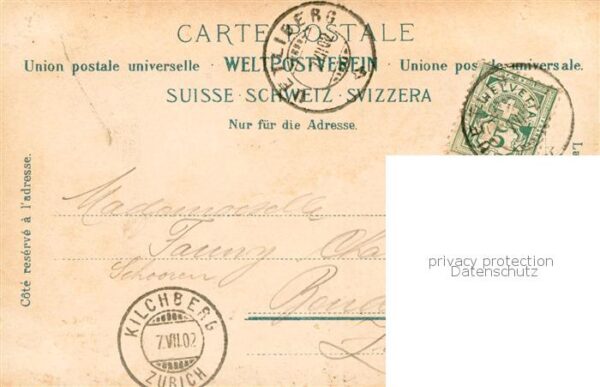 CARTE POSTALE
Union postale universelle · WELTPOSTVEREIN · Unione postale universale.
SUISSE · SCHWEIZ · SVIZZERA
Nur für die Adresse.
UETLIBERG
VII 02
HELVETIA
5
Côté reservé à l'adresse.
Mademoiselle
Fanny
Schooren
KILCHBERG
7.VII.02
ZÜRICH
privacy protection
Datenschutz